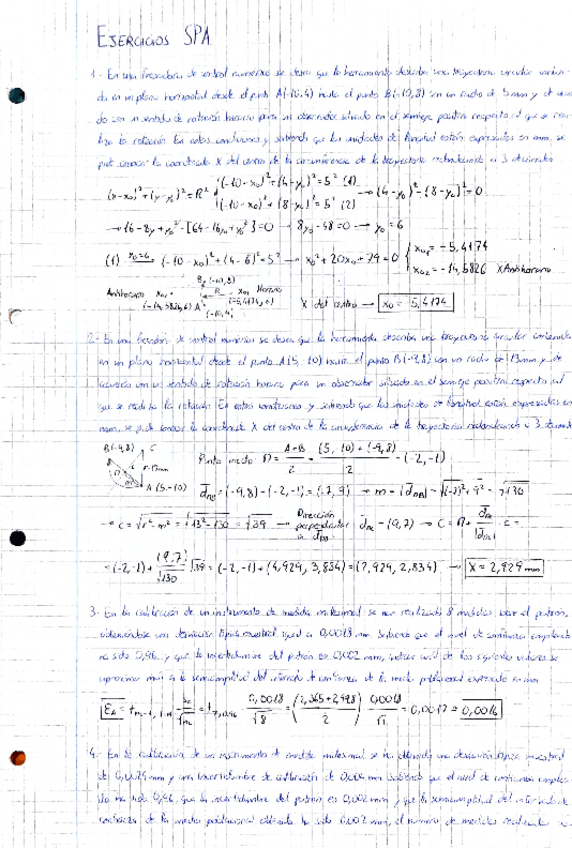 EJERCICIOS SPA
1.- En una fresadora de control numérico se desea que la herramienta describa una trayectoria circular
en un plano horizontal desde el punto A(-10,4) hasta el punto B(-10,8) con un radio de 5mm y de
con un sentido de rotación horario para un observador situado en el semieje positivo respecto al que se
la rotación. En estas condiciones y sabiendo que las unidades de longitud están expresadas en mm, se
pide conocer la coordenada X del centro de la circunferencia de la trayectoria redondeando a 3
(x-x₀)²+(y-y₀)²=R² (-10-x₀)²+(4-y₀)²=5² (1)
(-10-x₀)²+(8-y₀)²=5² (2) → (4-y₀)²-(8-y₀)²=0
→ 16-8y+y₀²-[64-16y₀+y₀²]=0 → 8y₀-48=0 → y₀=6
(1) (-10-x₀)²+(4-6)²=5² → x₀²+20x₀+79=0 x₀₁=-5,4174
x₀₂=-14,5826 X Antihorario
B (-10,8)
Antihorario X₀₂ R X₀₁ Horario
(-14,5826,6) A (-5,4174,6)
(-10,4)
X del centro → x₀=-5,4174
2.- En una fresadora de control numérico se desea que la herramienta describa una trayectoria circular contenida
en un plano horizontal desde el punto A(5,-10) hasta el punto B(-9,8) con un radio de 13mm y de
acuerdo con un sentido de rotación horario para un observador situado en el semieje positivo respecto al
que se realiza la rotación. En estas condiciones y sabiendo que las unidades de longitud están expresadas en
mm, se pide conocer la coordenada X del centro de la circunferencia de la trayectoria redondeando a 3
B(-9,8) C
r=13mm
A (5,-10)
Punto medio: M = A+B / 2 = (5,-10)+(-9,8) / 2 = (-2,-1)
=(-9,8)-(-2,-1)=(-7,9) → m= =√(-7)²+9²=√130
→ c=√r²-m²=√13²-130=√39 → Dirección
perpendicular
a → =(9,7) → C=M+ · c=
=(-2,-1)+ (9,7)/√130 √39=(-2,-1)+(4,929, 3,834)=(2,929, 2,834) → X=2,929mm
3.- En la calibración de un instrumento de medida milesimal se han realizado 8 medidas sobre el patrón,
obteniéndose una desviación típica muestral igual a 0,0018 mm. Sabiendo que el nivel de confianza empleado
ha sido 0,96 y que la incertidumbre del patrón es 0,002 mm, indicar cuál de los siguientes valores se
aproxima más a la semiamplitud del intervalo de confianza de la media poblacional expresado en mm
= 0,0018/√8 = (2,365+2,998 / 2) 0,0018/√8 = 0,0017 ≈ 0,0016
4.- En la calibración de un instrumento de medida milesimal se ha obtenido una desviación típica muestral
de 0,0025mm y una incertidumbre de calibración de 0,004 mm. Sabiendo que el nivel de confianza
ha sido 0,96, que la incertidumbre del patrón es 0,002 mm y que la semiamplitud del intervalo de
confianza de la media poblacional obtenida ha sido 0,002 mm, el número de medidas realizadas